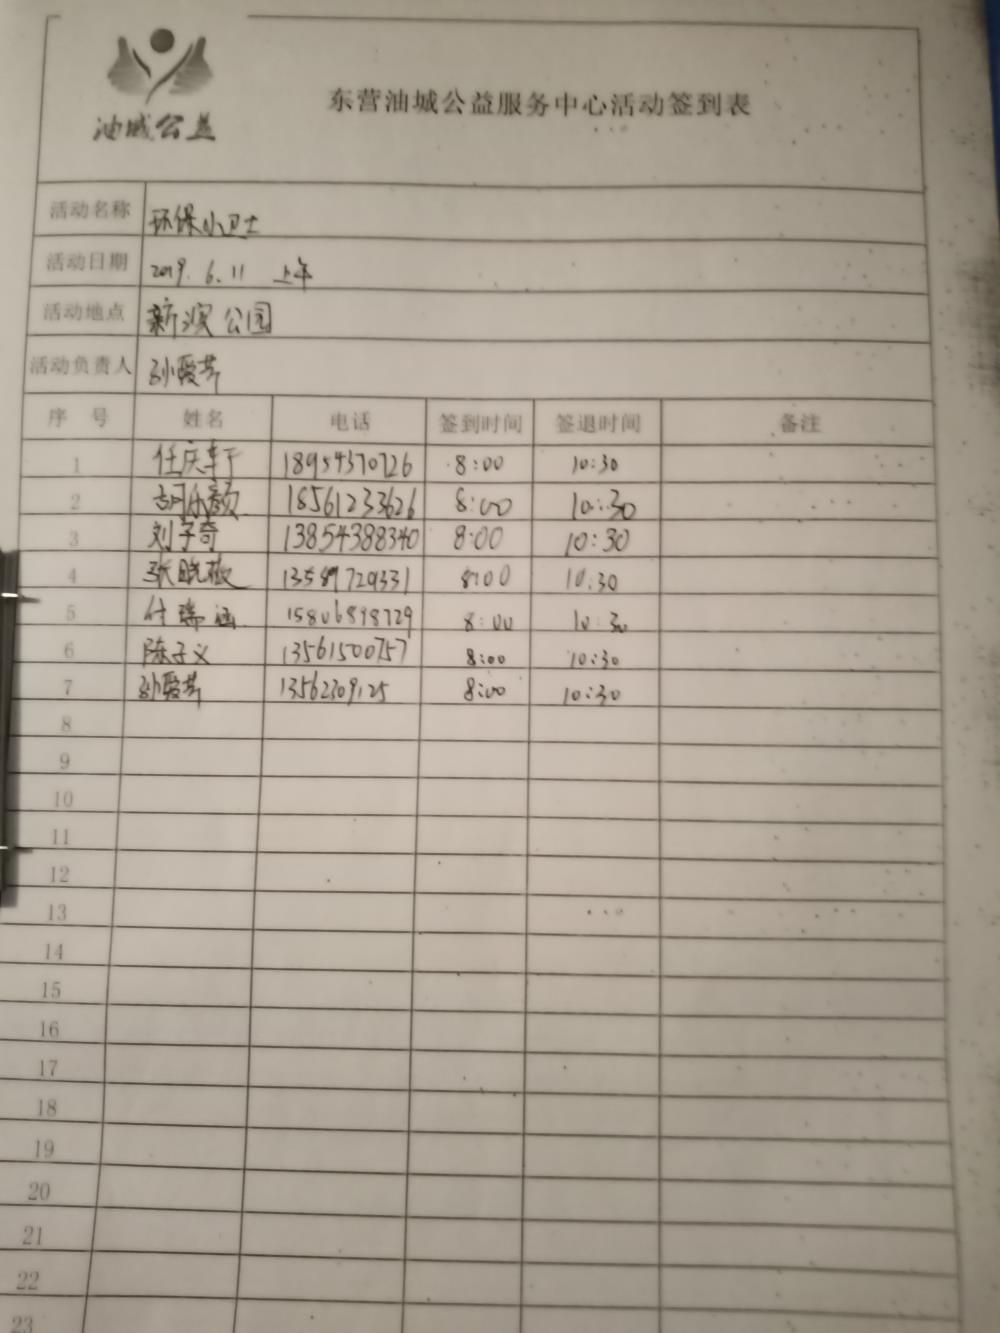 油城公益
东营油城公益服务中心活动签到表
活动名称 环保小卫士
活动日期 2019.6.11 上午
活动地点 新滨公园
活动负责人 孙爱芹
序 号 姓名 电话 签到时间 签退时间 备注
1 任庆轩 18954370726 8:00 10:30
2 胡乐颜 18561233626 8:00 10:30
3 刘子奇 13854388340 8:00 10:30
4 张晓敬 13589729331 8:00 10:30
5 付瑞涵 15806898729 8:00 10:30
6 陈子义 13561500757 8:00 10:30
7 孙爱芹 13562309125 8:00 10:30
8
9
10
11
12
13
14
15
16
17
18
19
20
21
22
23